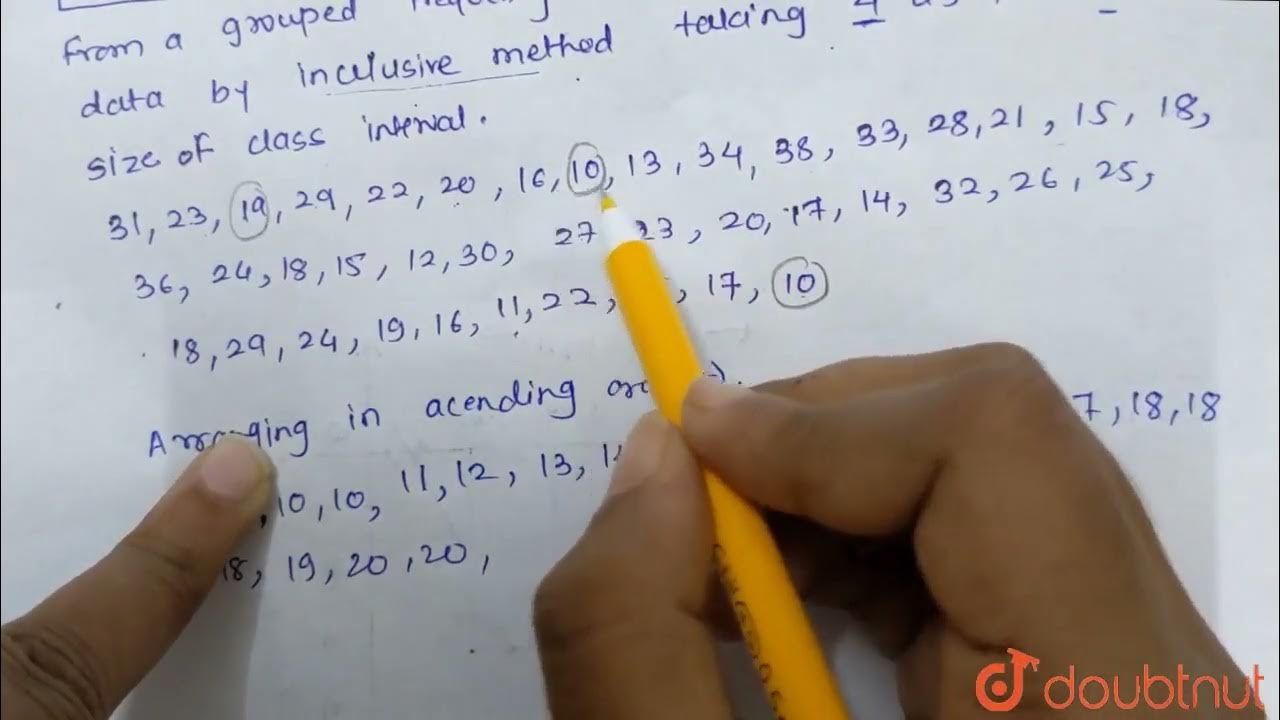 From a grouped
data by inclusive method taking 4
size of class interval.
31, 23, 19, 29, 22, 20, 16, 10, 13, 34, 38, 33, 28, 21, 15, 18,
36, 24, 18, 15, 12, 30, 27 23, 20, 17, 14, 32, 26, 25,
18, 29, 24, 19, 16, 11, 22, , 17, 10
Arranging in acending
, 10, 10, 11, 12, 13, 7, 18, 18
18, 19, 20, 20,
doubtnut